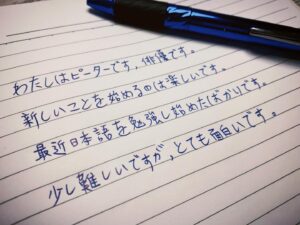 わたしはピーターです，俳優です。
新しいことを始めるのは楽しいです。
最近日本語を勉強し始めたばかりです。
少し難しいですが，とても面白いです。